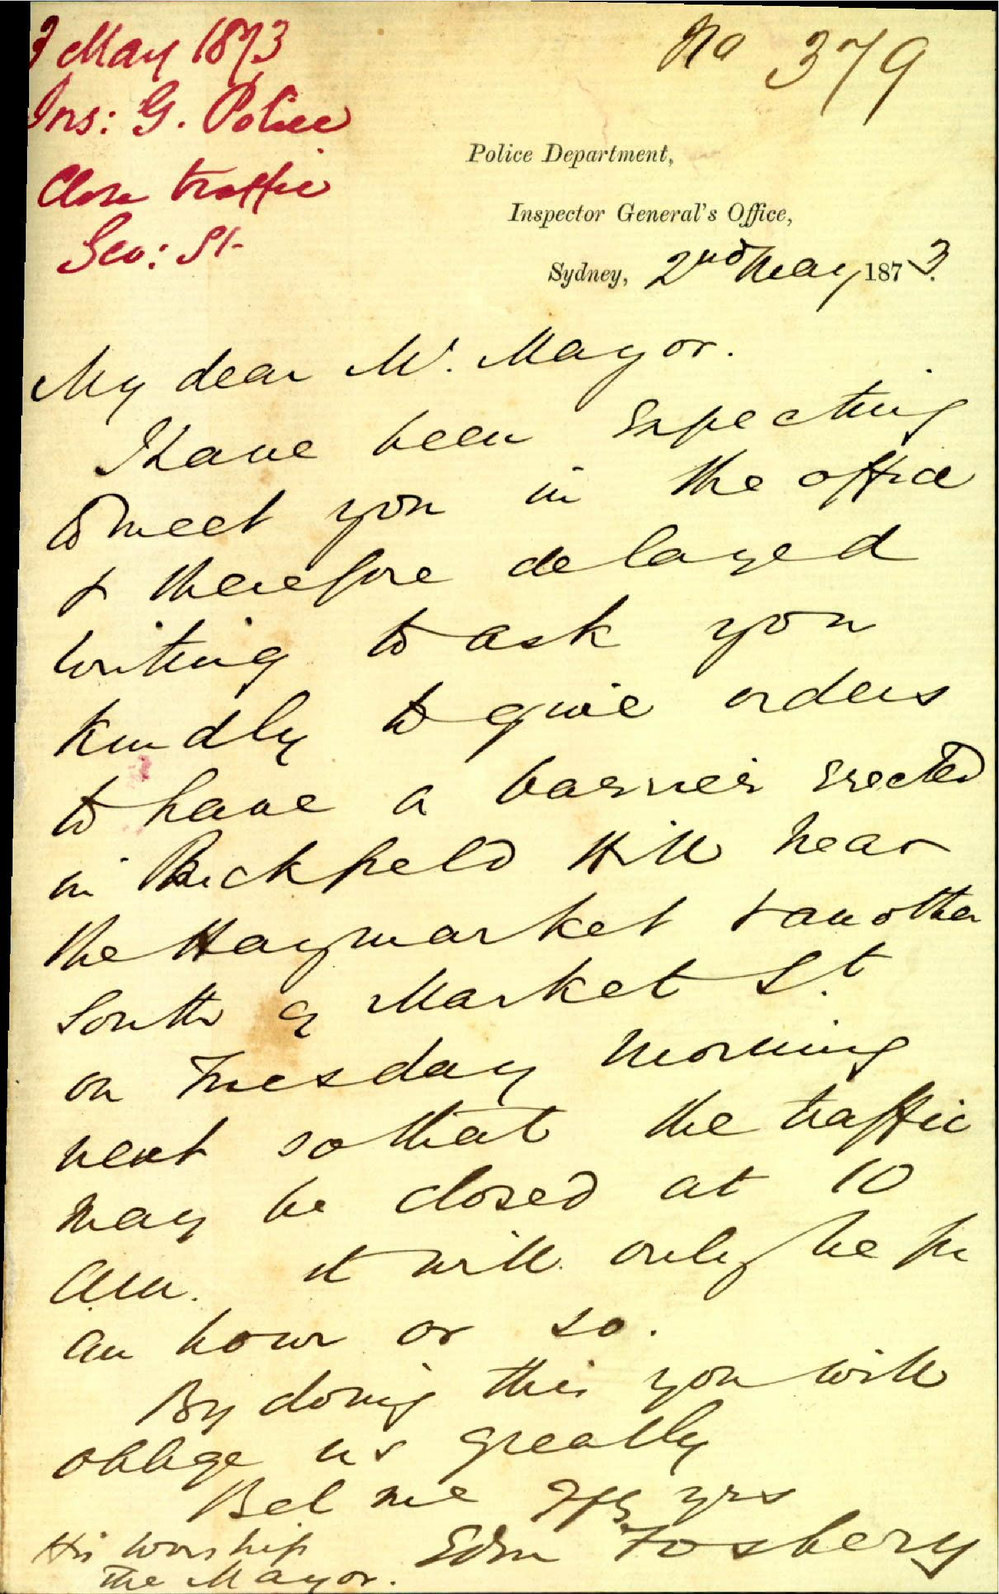 3 May 1873
Ins: G. Police
Close traffic
Geo: St
No 379
Police Department,
Inspector General's Office,
Sydney, 2nd May 1873.
My dear Mr. Mayor.
I have been expecting
to meet you in the office
& therefore delayed
writing to ask you
kindly to give orders
to have a barrier erected
in Brickfield Hill near
the Haymarket & another
South of Market St
on Tuesday morning
next so that the traffic
may be closed at 10
a.m. it will only be for
an hour or so.
By doing this you will
oblige us greatly
Bel me yrs
Edm Fosbery
His Worship
The Mayor.